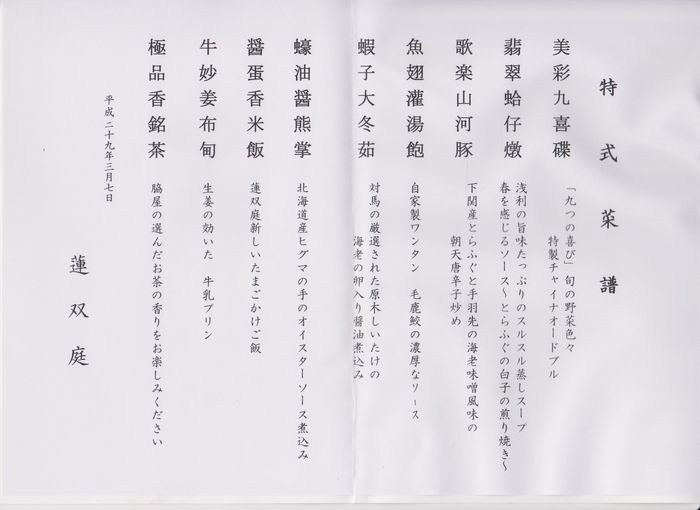 特式菜譜
美彩九喜碟
「九つの喜び」旬の野菜色々
特製チャイナオードブル
翡翠蛤仔燉
浅利の旨味たっぷりのスルスル蒸しスープ
春を感じるソース～とらふぐの白子の煎り焼き～
歌楽山河豚
下関産とらふぐと手羽先の海老味噌風味の
朝天唐辛子炒め
魚翅灌湯飽
自家製ワンタン 毛鹿鮫の濃厚なソース
蝦子大冬茹
対馬の厳選された原木しいたけの
海老の卵入り醤油煮込み
蠔油醤熊掌
北海道産ヒグマの手のオイスターソース煮込み
醤蛋香米飯
蓮双庭新しいたまごかけご飯
牛妙姜布甸
生姜の効いた 牛乳プリン
極品香銘茶
脇屋の選んだお茶の香りをお楽しみください
平成二十九年三月七日
蓮双庭